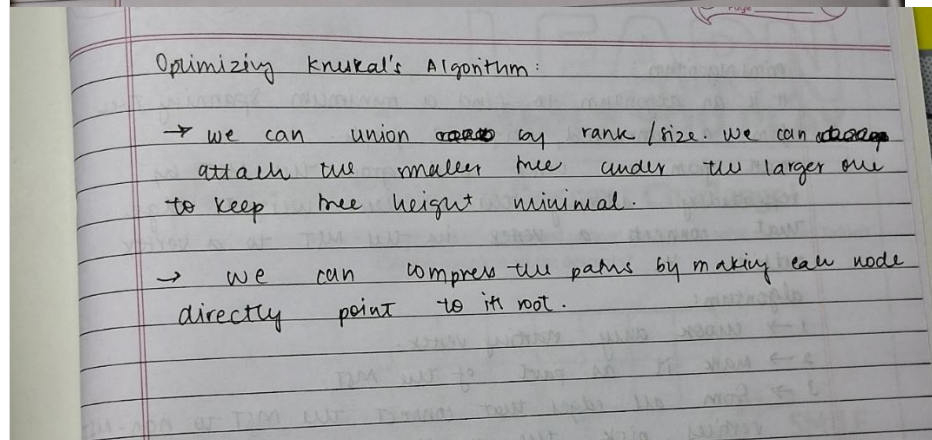 Page
Optimizing Kruskal's Algorithm:
→ we can union by rank/size. we can
attach the smaller tree under the larger one
to keep tree height minimal.
→ we can compress the paths by making each node
directly point to its root.